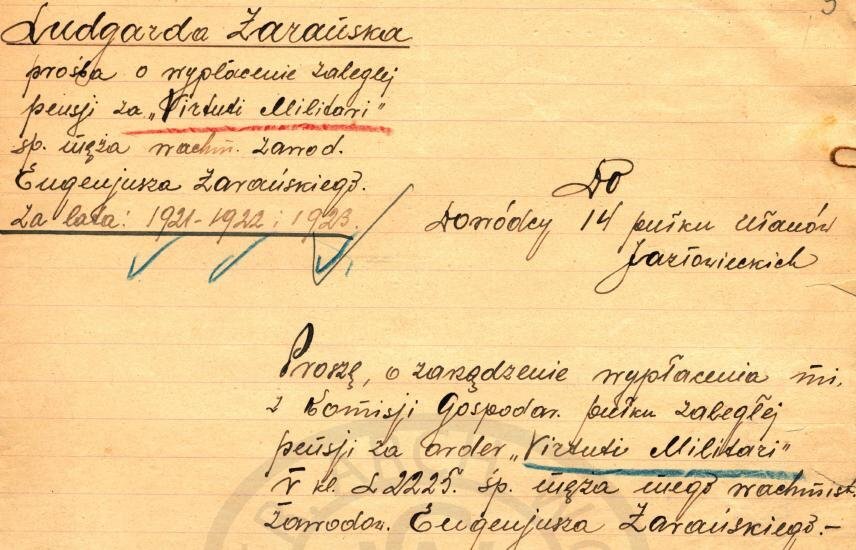 Ludgarda Żarańska
prośba o wypłacenie zaległej
pensji za „Virtuti Militari"
śp. męża wachm. zawod.
Eugenjusza Żarańskiego.
za lata: 1921-1922 i 1923.
Do
Dowódcy 14 pułku Ułanów
Jazłowieckich
Proszę, o zarządzenie wypłacenia mi,
z Komisji Gospodar. pułku zaległej
pensji za order „Virtuti Militari"
V kl. L 2225. śp. męża mego wachmist.
zawodow. Eugenjusza Żarańskiego.-